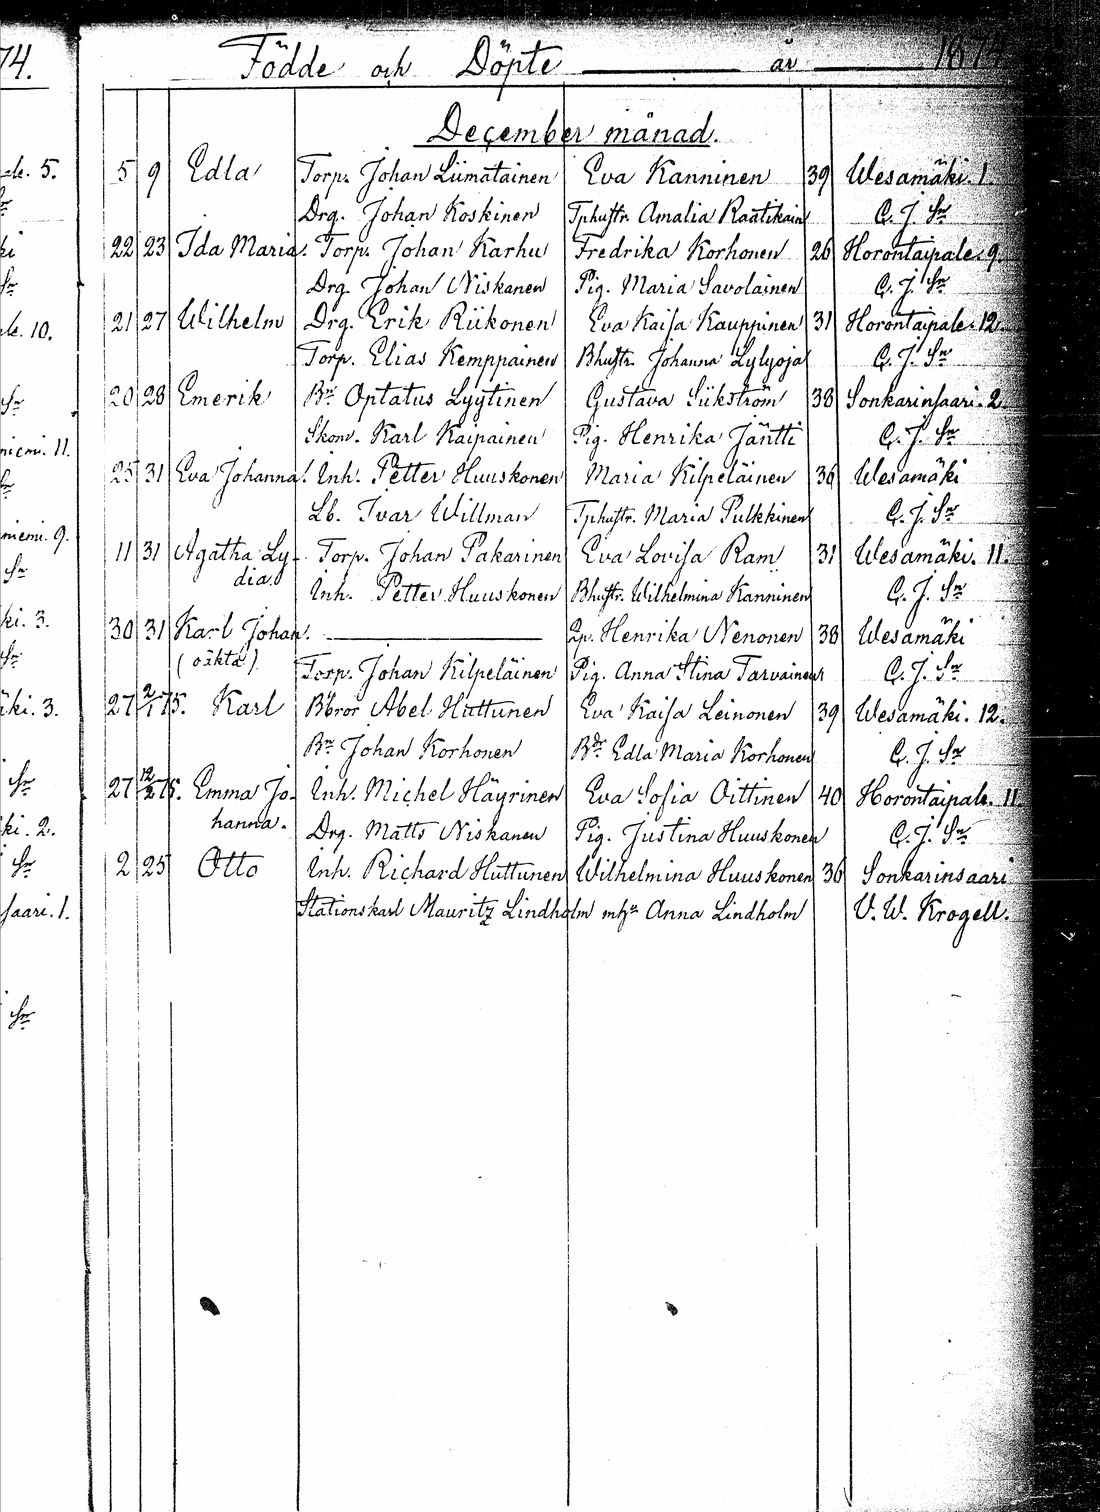 74.
Födde och Döpte ——— år ——— 1874
December månad.
5 9 Edla Torp. Johan Liimatainen Eva Kanninen 39 Wesamäki. 1.
Drg. Johan Koskinen Tphustr. Amalia Raatikain C. J. Sn
22 23 Ida Maria. Torp. Johan Karhu Fredrika Korhonen 26 Horontaipale. 9.
Drg. Johan Niskanen Pig. Maria Savolainen C. J. Sn
21 27 Wilhelm Drg. Erik Riikonen Eva Kaisa Kauppinen 31 Horontaipale. 12.
Torp. Elias Kemppainen Bhustr. Johanna Lylyoja C. J. Sn
20 28 Emerik Bn Optatus Lyytinen Gustava Siikström 38 Sonkarinsaari. 2.
Skom. Karl Kaipainen Pig. Henrika Jäntti C. J. Sn
25 31 Eva Johanna. Inh. Petter Huuskonen Maria Kilpeläinen 36 Wesamäki
Lb. Ivar Willman Tphustr. Maria Pulkkinen C. J. Sn
11 31 Agatha Ly- Torp. Johan Pakarinen Eva Lovisa Ram 31 Wesamäki. 11.
dia. Inh. Petter Huuskonen Bhustr. Wilhelmina Kanninen C. J. Sn
30 31 Karl Johan. ——— Qp. Henrika Nenonen 38 Wesamäki
(oäkta). Torp. Johan Kilpeläinen Pig. Anna Stina Tarvainen C. J. Sn
27 2/1 75. Karl Bbror Abel Huttunen Eva Kaisa Leinonen 39 Wesamäki. 12.
Bn Johan Korhonen Bdr. Edla Maria Korhonen C. J. Sn
27 12/2 75. Emma Jo- Inh. Michel Häyrinen Eva Sofia Oittinen 40 Horontaipale. 11
hanna. Drg. Matts Niskanen Pig. Justina Huuskonen C. J. Sn
2 25 Otto Inh. Richard Huttunen Wilhelmina Huuskonen 36 Sonkarinsaari
Stationskarl Mauritz Lindholm mhu Anna Lindholm V. W. Krogell.